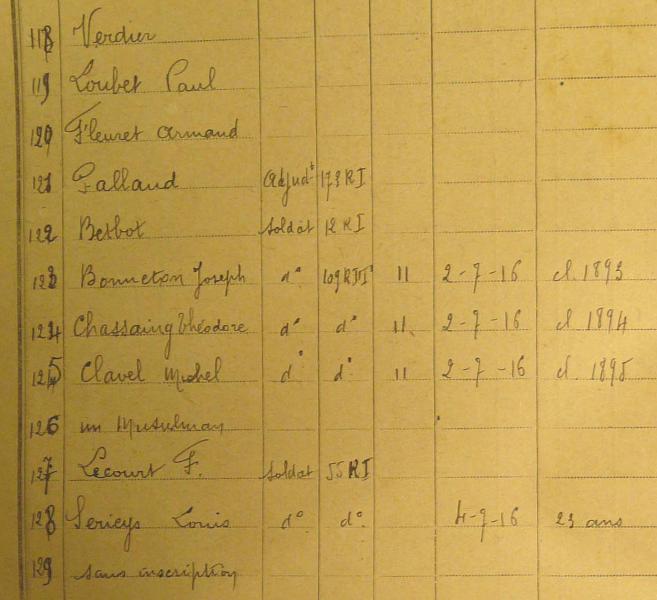 118 Verdier
119 Loubet Paul
120 Fleuret Armand
121 Galland Adjudt 173 RI
122 Betbot Soldat 12 RI
123 Bonneton Joseph d° 109 RIT 11 2-7-16 cl. 1893
124 Chassaing Théodore d° d° 11 2-7-16 cl 1894
125 Clavel Michel d° d° 11 2-7-16 cl. 1895
126 un Musulman
127 Lecourt F. Soldat 55 RI
128 Sericys Louis d° d° 4-7-16 23 ans
129 sans inscription